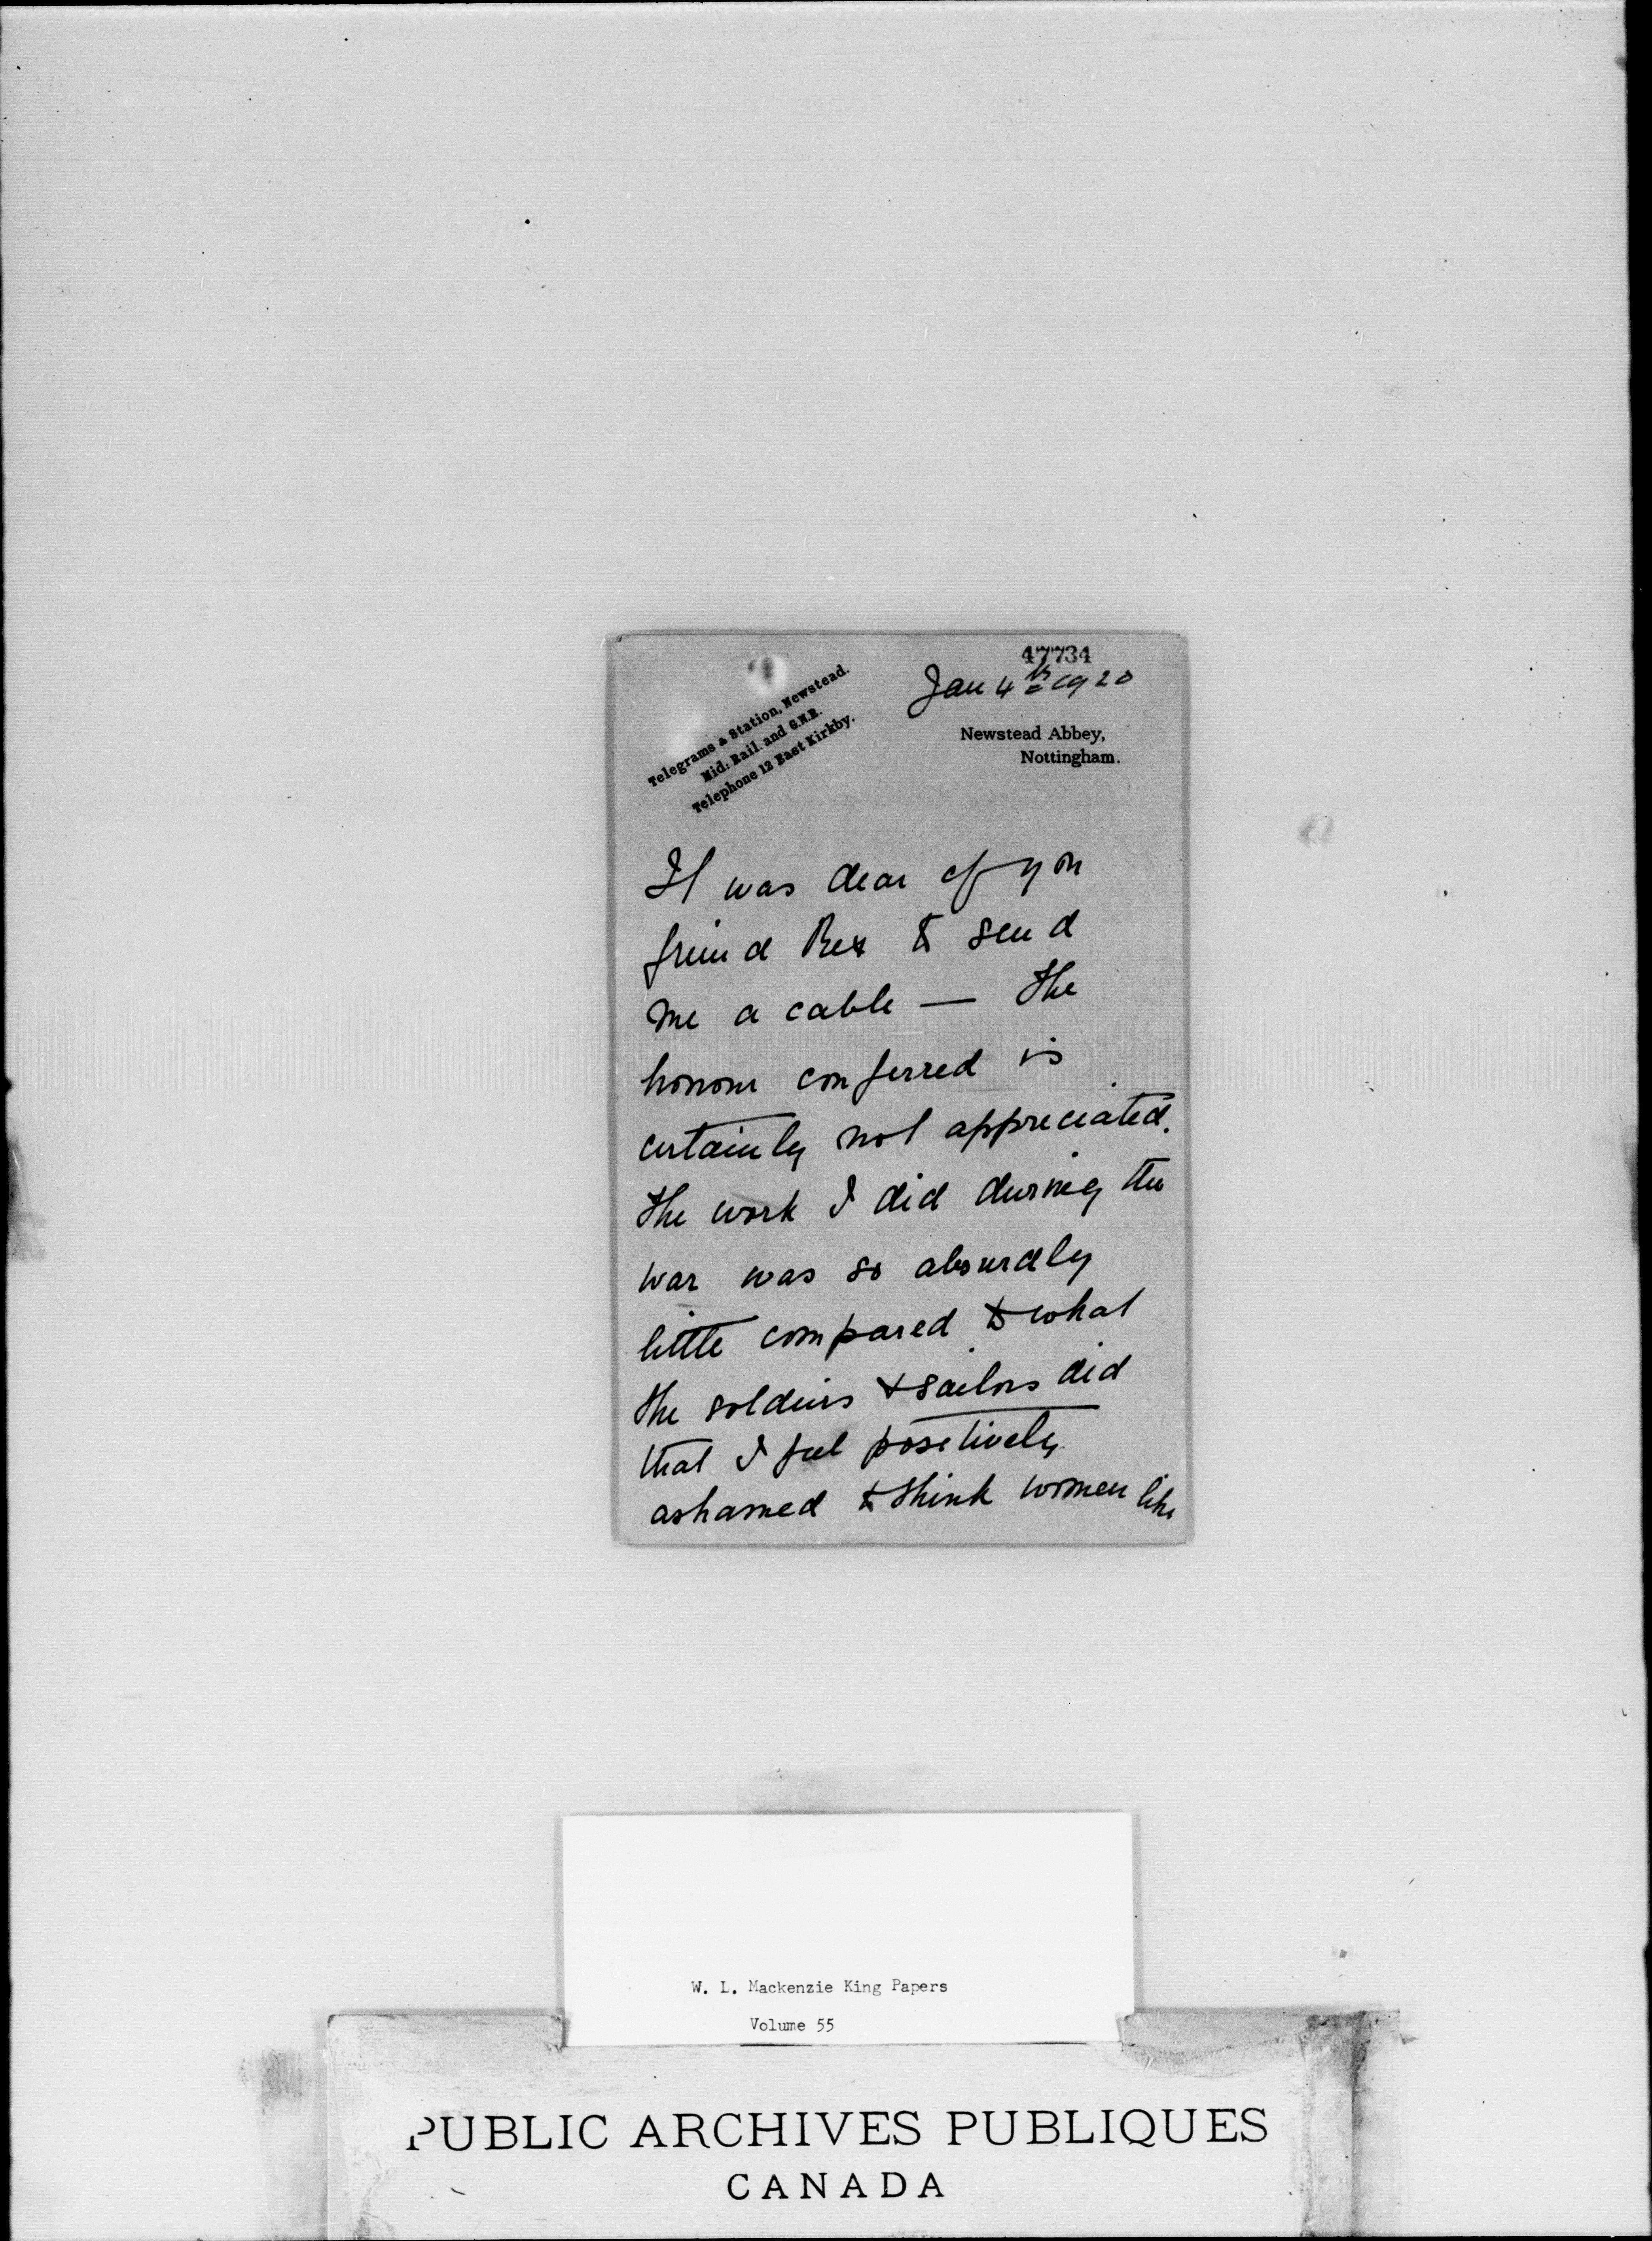 47734
Jan 4th 1920
Telegrams & Station, Newstead.
Mid: Rail. and G.N.R.
Telephone 12 East Kirkby.
Newstead Abbey,
Nottingham.
It was dear of you
friend Rex to send
me a cable — The
honour conferred is
certainly not appreciated.
The work I did during the
war was so absurdly
little compared to what
the soldiers & sailors did
that I feel positively
ashamed to think women like
W. L. Mackenzie King Papers
Volume 55
PUBLIC ARCHIVES PUBLIQUES
CANADA